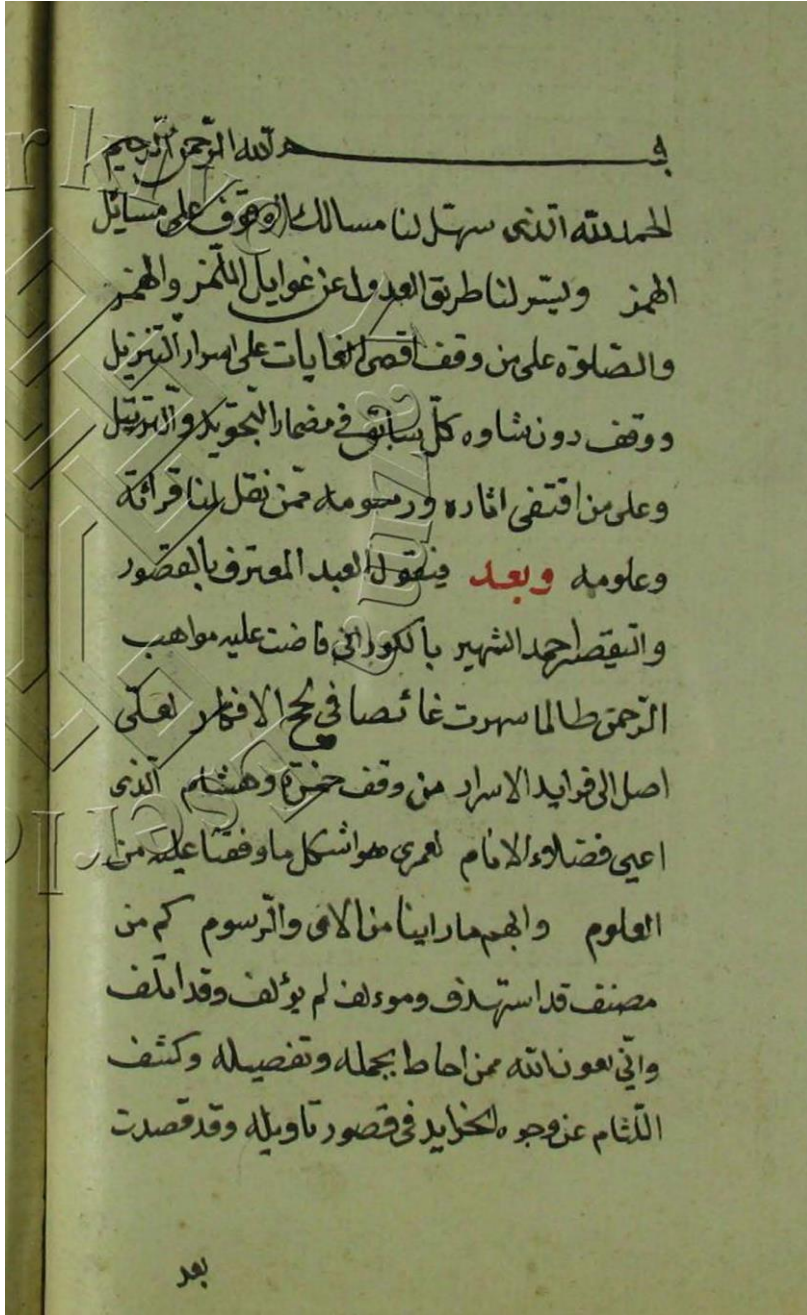 بسم الله الرحمن الرحيم
الحمد لله الذى سهل لنا مسالك الوقوف على مسائل
الهمز ويسر لنا طريق العدول عن غوايل اللمز والهمز
والصلوة على من وقف اقصى الغايات على اسرار التنزيل
ووقف دون شاوه كل سابق في مضمار التجويد والترتيل
وعلى من اقتفى اثاره ورسومه ممن نقل لنا قرائة
وعلومه وبعد فيقول العبد المعترف بالقصور
احمد الشهير بالكورانى فاضت عليه مواهب
الرحمن طالما سهرت غائصا في لجج الافكار لعلى
اصل الى فرايد الاسرار من وقف حمزة وهشام الذى
اعيى فضلاء الانام لعمرى هو اشكل ما وقفنا عليه من
العلوم وابهم ما راينا من والرسوم كم من
مصنف قد استهدف وموءلف لم يؤلف وقد
وانى بعون الله ممن احاط بجمله وتفصيله وكشف
اللثام عن وجوه الخرايد في قصور تاويله وقد قصدت
بعد